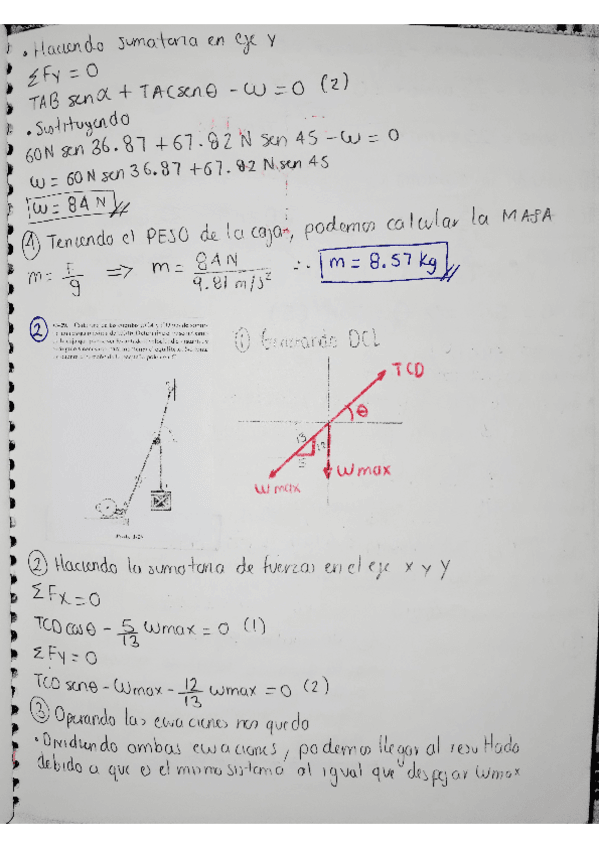 • Haciendo sumatoria en eje y
ΣFy = 0
TAB senα + TAC senθ - W = 0 (2)
• Sustituyendo
60N sen 36.87 + 67.82 N sen 45 - W = 0
W = 60N sen 36.87 + 67.82 N sen 45
W = 84 N
④ Teniendo el PESO de la caja, podemos calcular la MASA
m = F/g => m = 84N / 9.81 m/s² ∴ m = 8.57 Kg
②
① Generando DCL
TCD
θ
13
12
5
W max
W max
② Haciendo la sumatoria de fuerzas en el eje x y y
ΣFx = 0
TCD cosθ - 5/13 Wmax = 0 (1)
ΣFy = 0
TCD senθ - Wmax - 12/13 Wmax = 0 (2)
③ Operando las ecuaciones nos queda
• Dividiendo ambas ecuaciones, podemos llegar al resultado
debido a que es el mismo sistema al igual que despejar Wmax